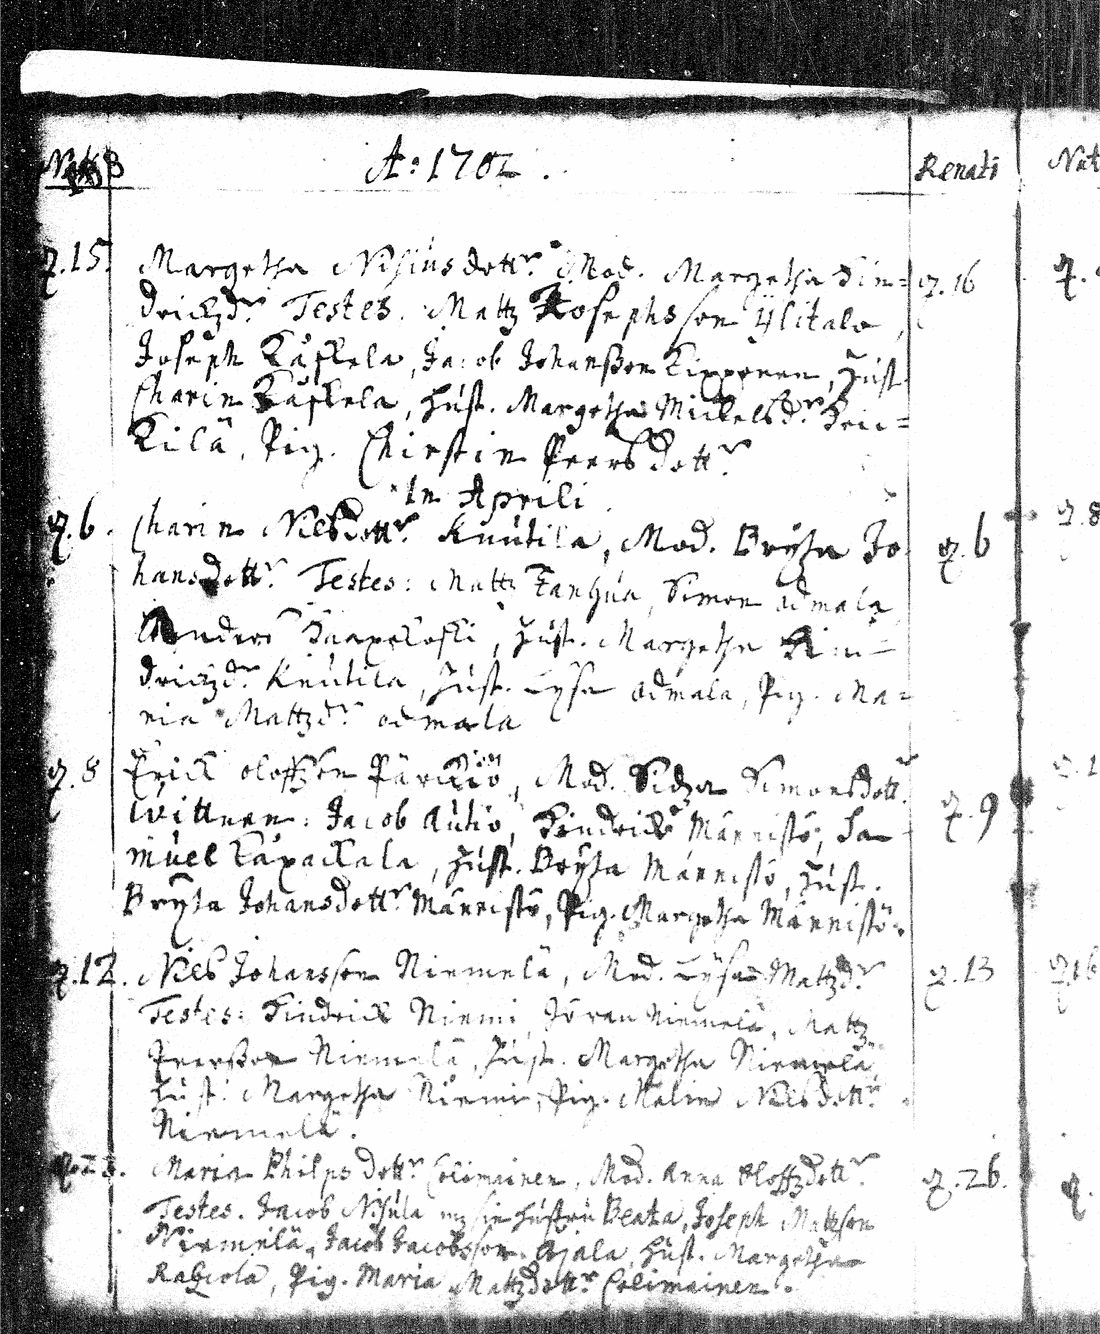 A: 1702. Renati
d. 15. Margetha Nisiusdottr. Mod. Margetha Hin= d. 16
drichzdr. Testes. Mattz Josephsson Ylitalo,
Joseph Kåskela, Jacob Johansson Kipponen, Hust.
Charin Kåskela, Hust. Margetha Mickelsdr.
Kilä, Pig. Chirstin Peersdottr
In Aprili.
d. 6. Charin Nilsdottr. Knutila, Mod. Bryta Jo= d. 6
hansdottr. Testes: Mattz Fanhua, Simon Ådmala
Anders Haapakoski, Hust. Margetha Hin=
drichzdr. Knutila, Hust. Lysa Ådmala, Pig. Ma=
ria Mattzdr. Ådmala
d. 8 Erick Oloffzon Pärckiö, Mod. Sidza Simonsdottr. d. 9
Wittnen: Jacob Autio, Hindrich Männistö, Sa=
muel Kåpackala, Hust. Bryta Männistö, Hust.
Bryta Johansdottr. Männistö, Pig. Margetha Männistö.
d. 12. Nils Johansson Niemelä, Mod. Lysa Mattzdr. d. 13
Testes: Hindrick Niemi, Jöran Niemelä, Mattz
Peersson Niemelä, Hust. Margetha Niemelä,
Hust. Margetha Niemi, Pig. Malin Nilsdottr.
Niemelä.
Maria Philpsdottr. Colimainen, Mod. Anna Oloffzdottr. d. 26.
Testes. Jacob Nisula Hustru Beata, Joseph Mattzson
Niemelä, Jacob Jacobsson Ojala, Hust. Margetha
Ragiola, Pig. Maria Mattzdottr. Colimainen.